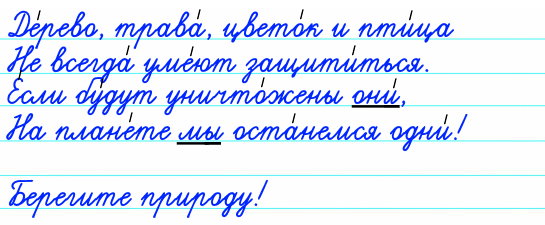 Де́рево, трава́, цвето́к и пти́ца
Не всегда́ уме́ют защити́ться.
Е́сли бу́дут уничто́жены они́,
На плане́те мы оста́немся одни́!
Берегите природу!